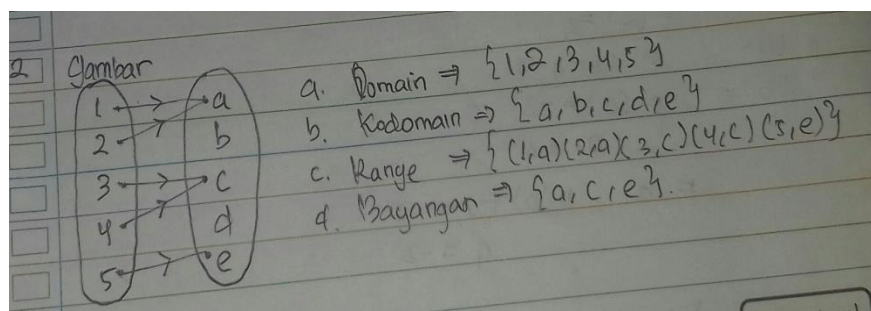 2 Gambar
1 a
2 b
3 c
4 d
5 e
a. Domain ⇒ {1,2,3,4,5}
b. Kodomain ⇒ {a,b,c,d,e}
c. Range ⇒ {(1,a)(2,a)(3,c)(4,c)(5,e)}
d. Bayangan ⇒ {a,c,e}.